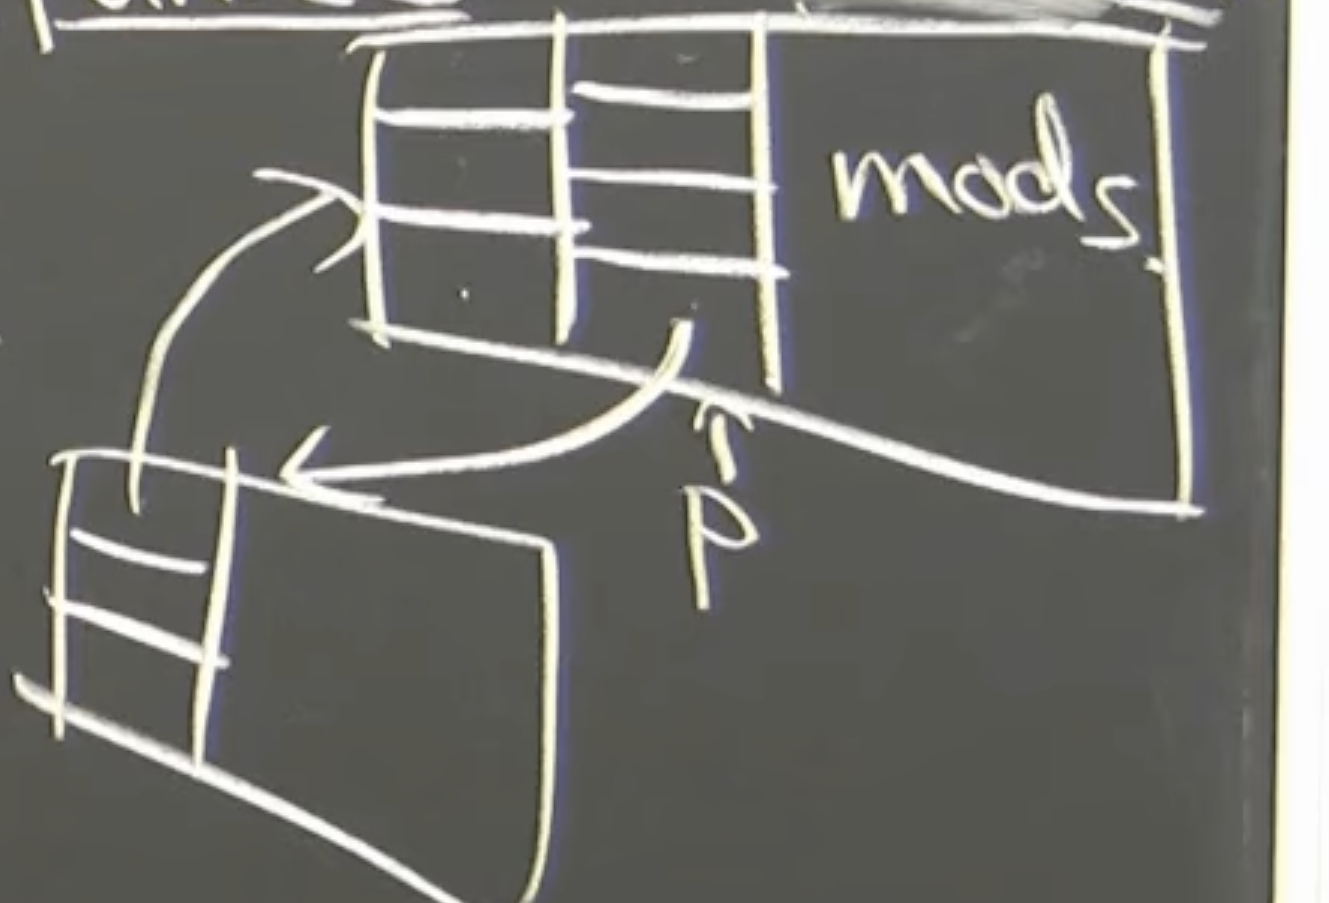 mods
p